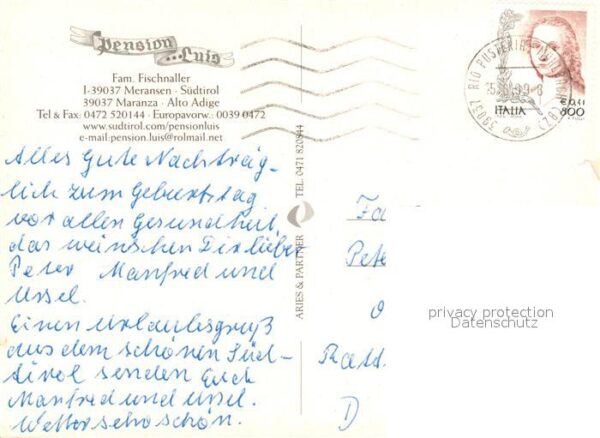 Pension
...Luis
Fam. Fischnaller
I-39037 Meransen · Südtirol
39037 Maranza · Alto Adige
Tel & Fax: 0472 520144 · Europavorw.: 0039 0472
www.sudtirol.com/pensionluis
e-mail:pension.luis@rolmail.net
Alles Gute Nachträg-
lich zum Geburtstag
vor allen Gesundheit,
das wünschen Dir lieber
Peter Manfred und
Ursel.
Einen Urlaubsgruß
aus dem schönen Süd-
tirol senden Euch
Manfred und Ursel.
Wetter sehr schön.
ARIES & PARTNER
TEL. 0471 820844
ITALIA
€ 0,41
800
39037 RIO PUSTERIA
(BZ)
Fa
Pete
D
privacy protection
Datenschutz